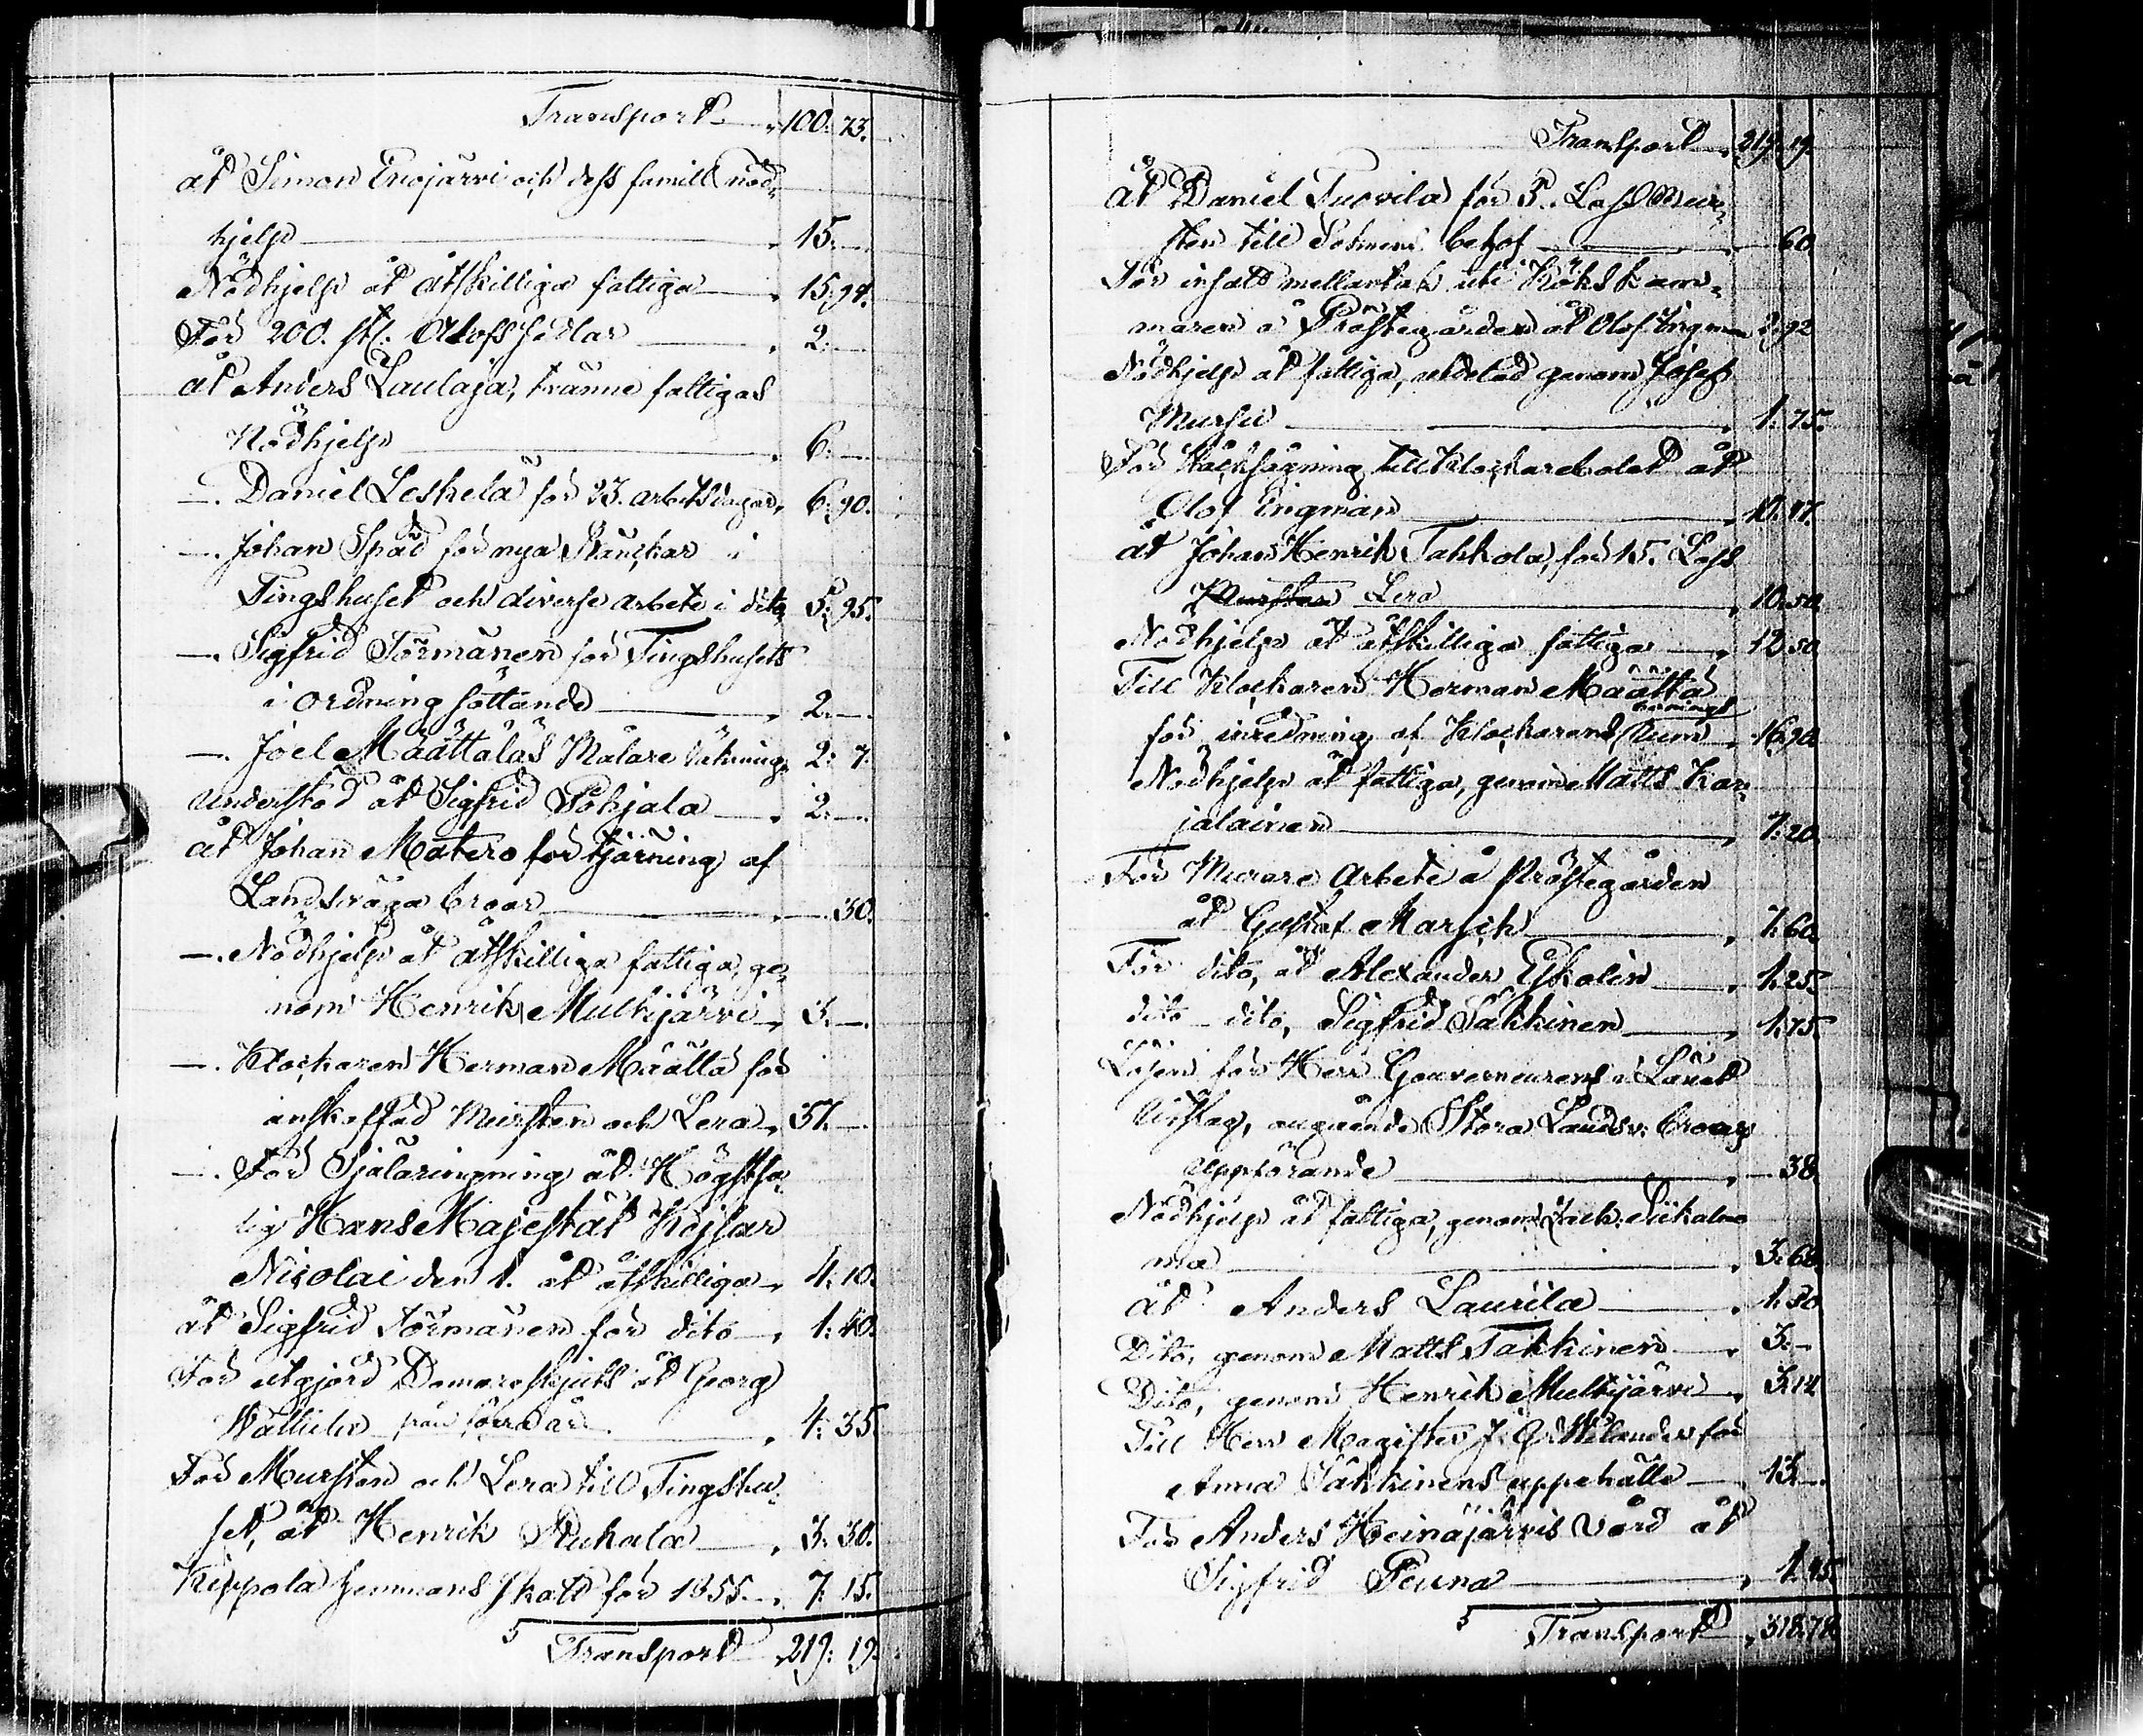 Transport 100: 73.
åt Simon Enojärvi och dess famill nöd-
hjelp 15.—
Nödhjelp åt åtskilliga fattiga 15: 94.
För 200. st: Alofs sedlar 2.—
åt Anders Laulaja, tvänne fattigas
Nödhjelp 6.—
—. Daniel Leskelä för 23. arbetsdagar 6: 90.
—. Johan Späd för nya Bänckar i
Tingshuset och diverse arbete i dito 5: 95.
—. Sigfrid Törmänen för Tingshusets
i ordning sättande 2.—
—. Joel Määttäläs Målare räkning 2: 7.
Understöd åt Sigfrid Pohjala 2.—
åt Johan Matero för tjärning af
Landsväga broar —30.
—. Nödhjelp åt åtskilliga fattiga, ge-
nom Henrik Multijärvi 3.—
—. Klockaren Herman Määttä för
anskaffad Mursten och Lera 37.—
—. För Själaringning åt Högstsa-
lig Hans Majestät Kejsar
Nicolai den 1. åt åtskilliga 4: 10.
åt Sigfrid Törmänen för dito 1: 40.
För utgjord Domareskjuts åt Georg
från förra år 4: 35.
För Mursten och Lera till Tingshu-
set, åt Henrik Pukala 3: 30.
Kippola hemmans skatt för 1855. 7: 15.
Transport 219: 19.
Transport 219: 19.
åt Daniel Tuovila för 3. Lass Mur-
sten till Soknens behof 60.
För insatt mellantak uti Kökskam-
maren å Prästegården åt Olof Engman 2: 92
Nödhjelp åt fattiga, utdelad genom Josef
Mursu 1: 75.
För Stocksågning till Klockarebolet åt
Olof Engman 10: 47.
åt Johan Henrik Takkola, för 15. Lass
Mursten Lera 10: 50
Nödhjelp åt åtskilliga fattiga 12: 50
Till Klockaren Herman Määttä
för inredning af Klockarens Rum 16: 90
Nödhjelp åt fattiga, genom Matts Kar-
jalainen 7: 20.
För Murare Arbete å Prästegården
åt Gustaf Marsch 1: 60.
För dito, åt Alexander Eskolin 1: 25.
dito dito, Sigfrid Säkkinen 1: 75.
Lösen för Herr Gouverneurens i Länet
Utslag, angående Stora Landsv: broars
uppförande —38
Nödhjelp åt fattiga, genom Zach: Siikalno
ma 3: 62.
åt Anders Laurila 1: 50
Dito, genom Matts Takkinen 3.—
Dito, genom Henrik Multijärvi 3: 14
Till Herr Magister J: G: Welander för
Anna Säkkinens uppehälle 13.—
För Anders Heinäjärvis Vård åt
Sigfrid Peuna 1: 95.
Transport 318: 78